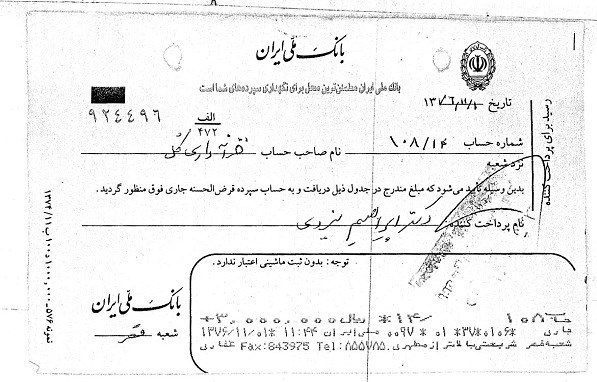 بانک ملّی ایران
بانک ملی ایران مطمئن‌ترین محل برای نگهداری سپرده‌های شما است
۹۲۴۴۹۶
الف
۴۷۲
تاریخ ۱۳۷۶/۱۱/۱
رسید برای پرداخت کننده
شماره حساب ۱۰۸/۱۴ نام صاحب حساب خزانه‌داری کل
نزد شعبه
بدین وسیله تأیید می‌شود که مبلغ مندرج در جدول ذیل دریافت و به حساب سپرده قرض‌الحسنه جاری فوق منظور گردید.
نام پرداخت کننده دکتر ابراهیم یزدی
توجه : بدون ثبت ماشینی اعتبار ندارد.
بانک ملّی ایران
شعبه قصر
ریال
جاری ملی ایران ۱۱:۴۴ ۱۳۷۶/۱۱/۰۱
شعبه‌قصر شریعتی‌بالاتر از مطهری Tel:۸۵۵۷۸۵ Fax:843975 غفاری